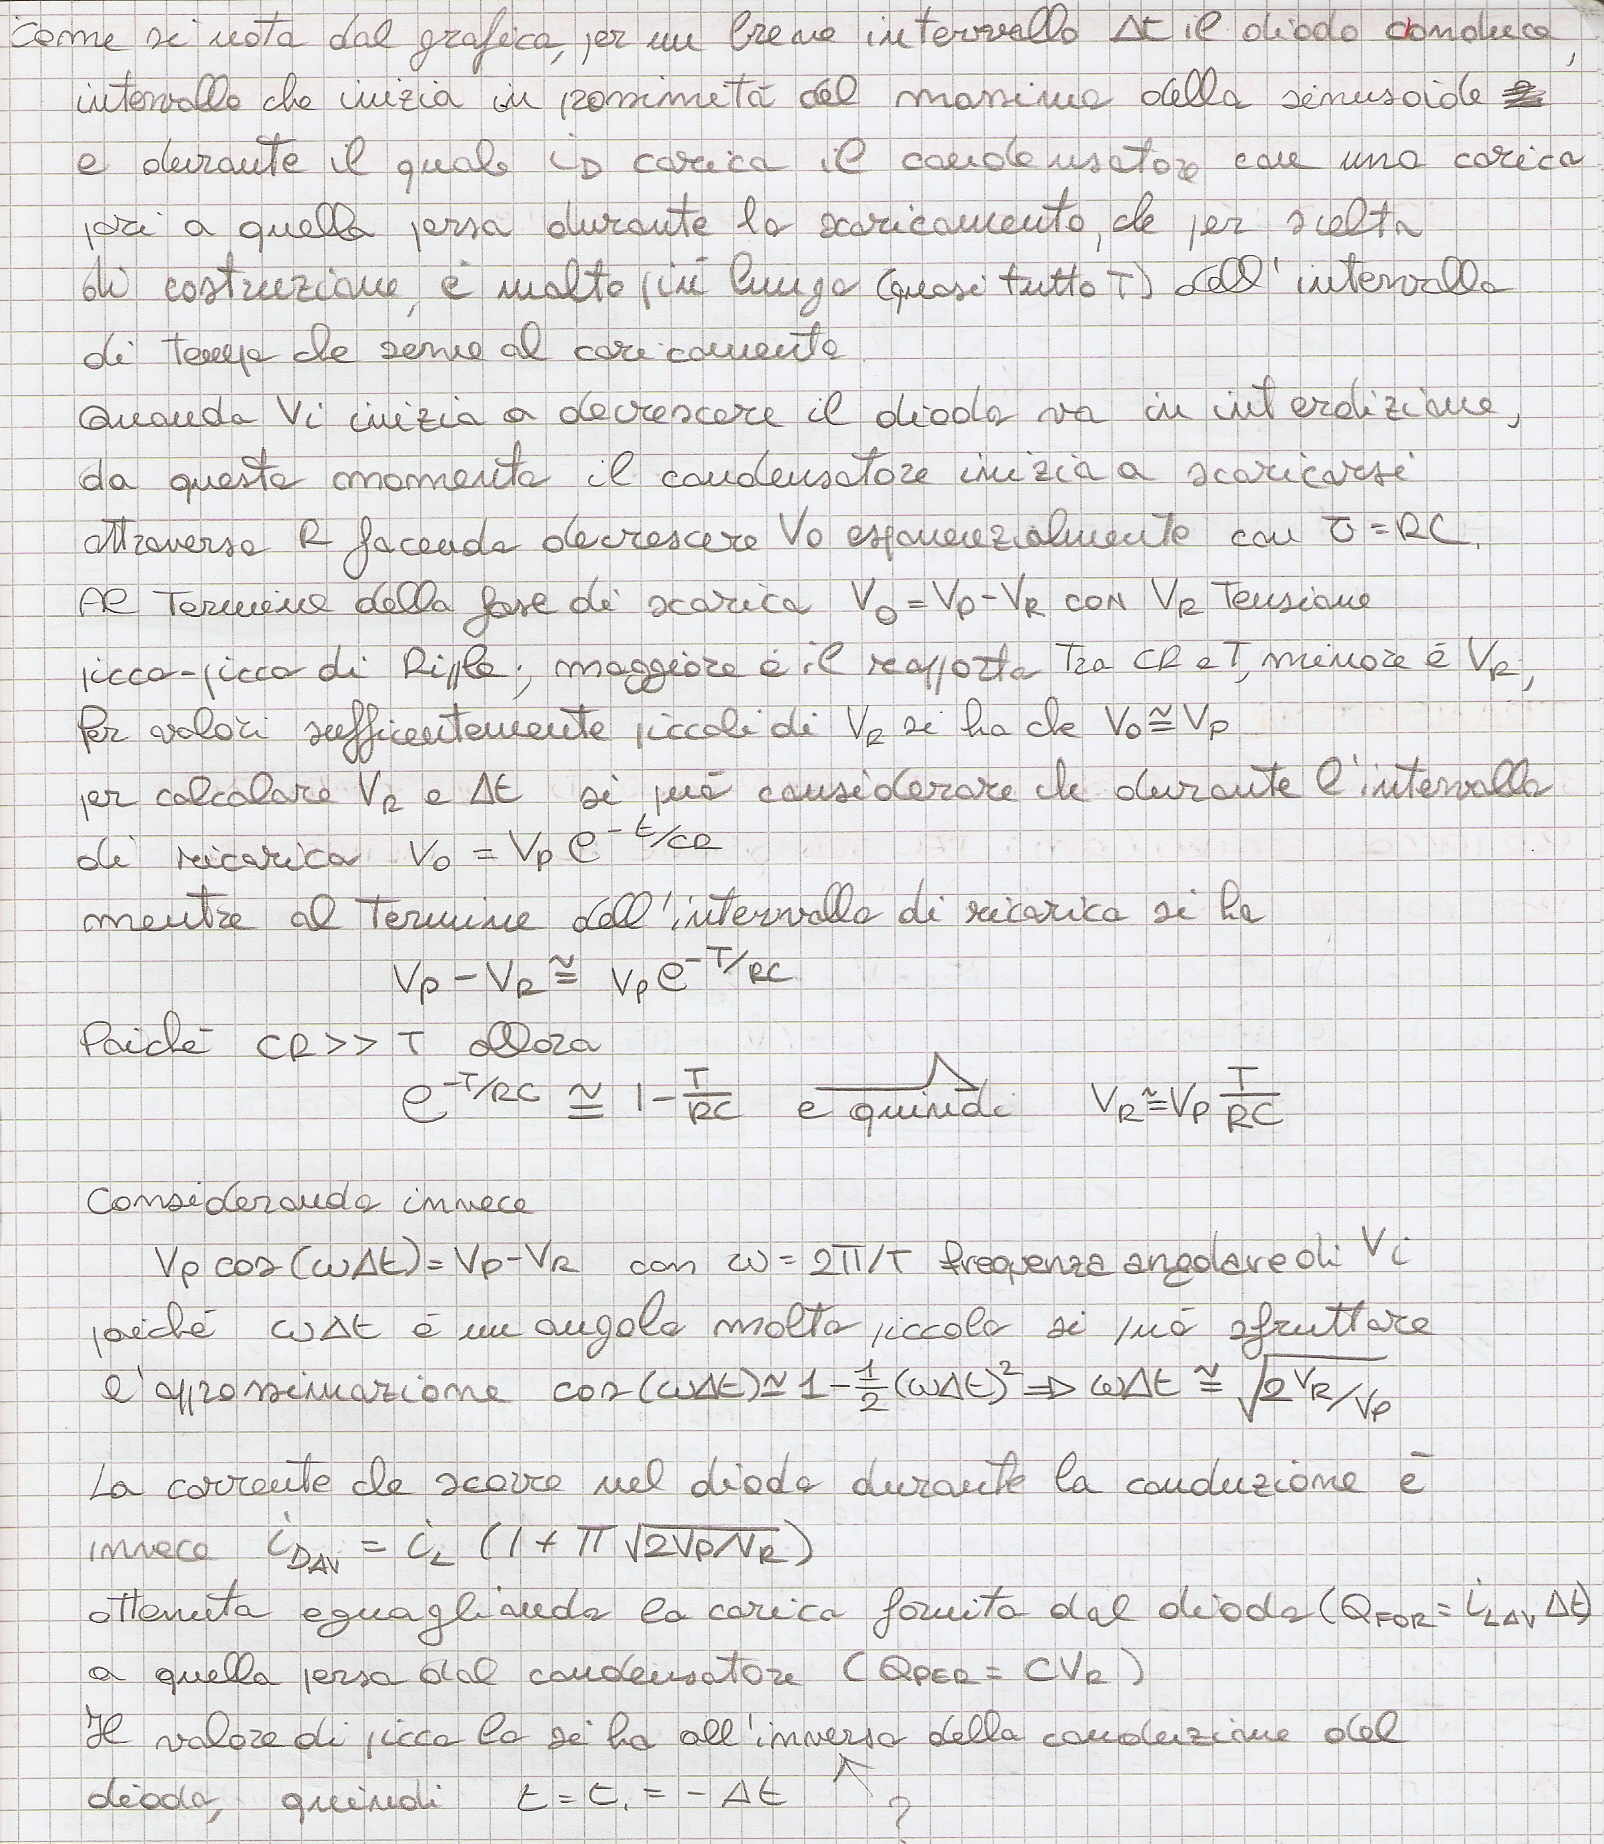 Come si nota dal grafico, per un breve intervallo Δt il diodo conduce,
intervallo che inizia in prossimità del massimo della sinusoide
e durante il quale iD carica il condensatore con una carica
pari a quella persa durante lo scaricamento, che per scelta
di costruzione, è molto più lungo (quasi tutto T) dell'intervallo
di tempo che serve al caricamento.
Quando Vi inizia a decrescere il diodo va in interdizione,
da questo momento il condensatore inizia a scaricarsi
attraverso R facendo decrescere Vo esponenzialmente con τ = RC.
Al termine della fase di scarica Vo = Vp - VR con VR tensione
picco-picco di Ripple; maggiore è il rapporto tra CR e T, minore è VR,
Per valori sufficentemente piccoli di VR si ha che Vo ≅ Vp
per calcolare VR e Δt si può considerare che durante l'intervallo
di ricarica Vo = Vp e^-t/CR
mentre al termine dell'intervallo di ricarica si ha
Vp - VR ≅ Vp e^-T/RC
Poiché CR >> T allora
e^-T/RC ≅ 1 - T/RC e quindi VR ≅ Vp T/RC
Considerando invece
Vp cos(ωΔt) = Vp - VR con ω = 2π/T frequenza angolare di Vi
poiché ωΔt è un angolo molto piccolo si può sfruttare
l'approssimazione cos(ωΔt) ≃ 1 - 1/2 (ωΔt)² ⇒ ωΔt ≅ √2VR/Vp
La corrente che scorre nel diodo durante la conduzione è
invece iDAV = iL (1 + π √2Vp/VR)
ottenuta eguagliando la carica fornita dal diodo (QFOR = iLAV Δt)
a quella persa dal condensatore (QPER = CVR)
Il valore di picco lo si ha all'inverso della conduzione del
diodo, quindi t = t1 = - Δt ?